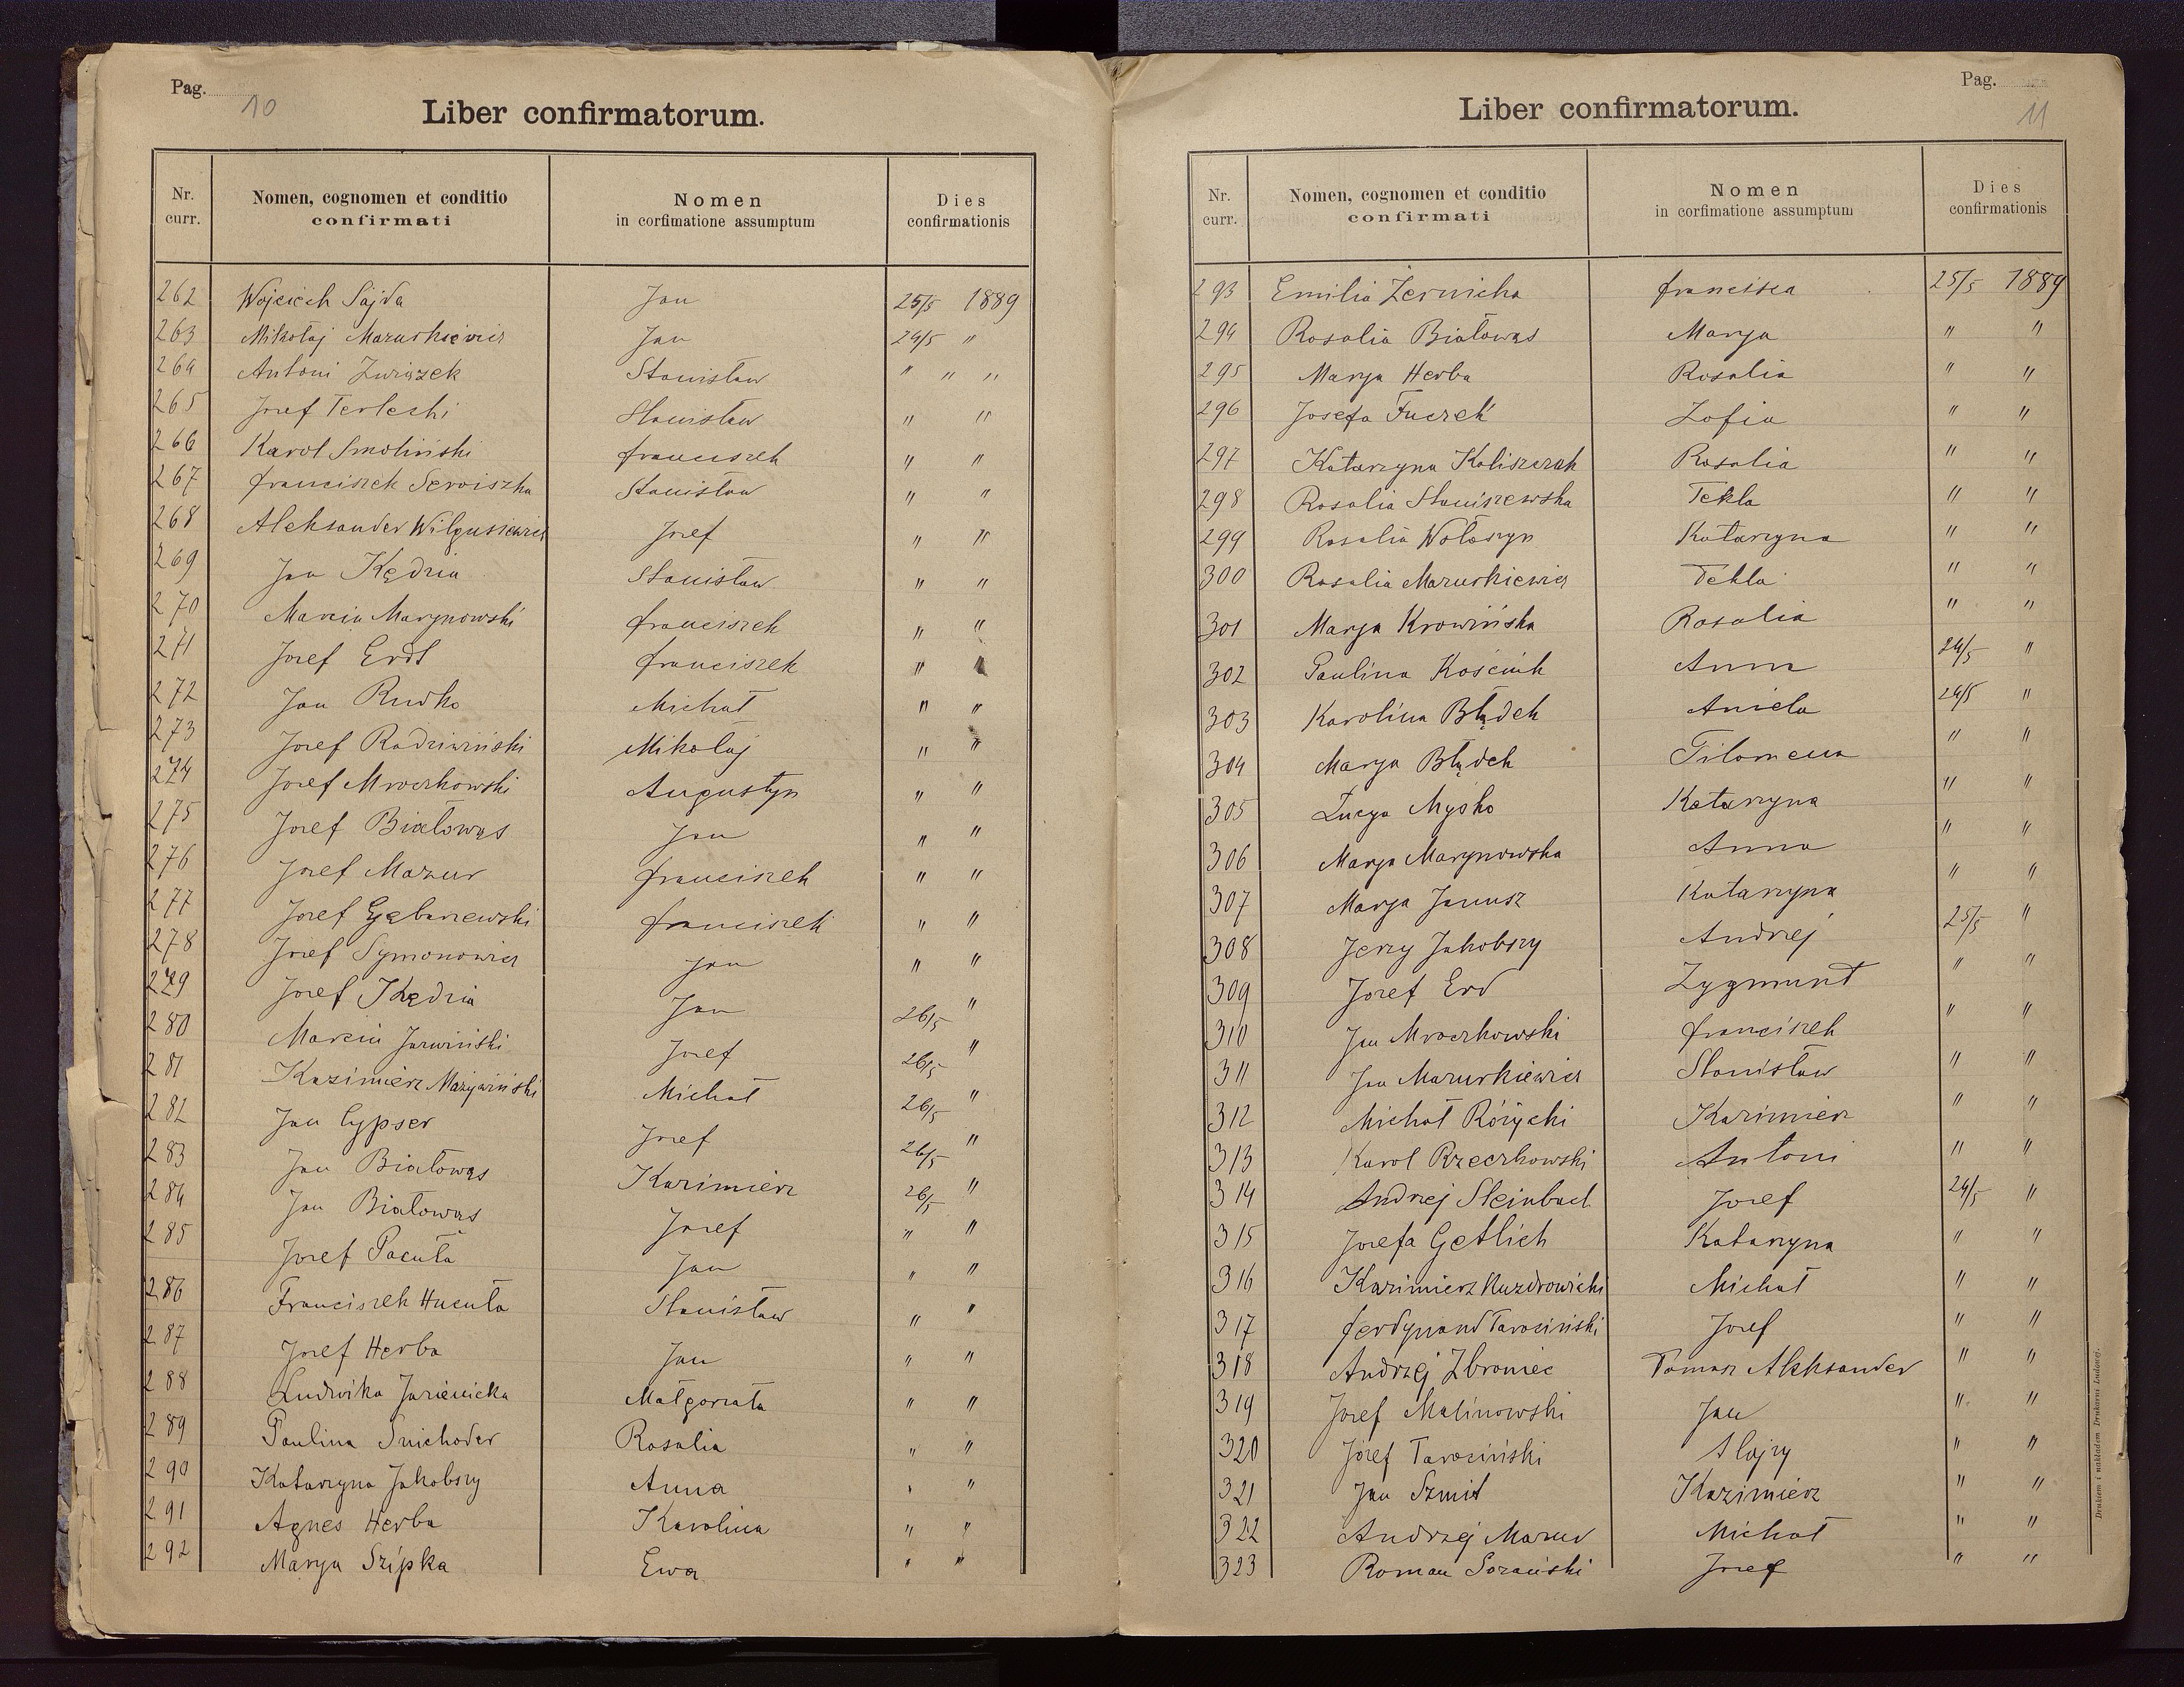 Pag. 10
Liber confirmatorum.
Nr. curr. Nomen, cognomen et conditio confirmati Nomen in corfimatione assumptum Dies confirmationis
262 Wojciech Sajda Jan 25/5 1889
263 Mikołaj Mazurkiewicz Jan 24/5 "
264 Antoni Związek Stanisław " " "
265 Józef Terlecki Stanisław " "
266 Karol Smoliński franciszek " "
267 franciszek Serwiszka Stanisław " "
268 Aleksander Wilgusiewicz Józef " "
269 Jan Kędzia Stanisław " "
270 Marcin Marynowski franciszek " "
271 Józef Erdt franciszek "
272 Jan Rudko Michał " "
273 Józef Radziwiński Mikołaj " "
274 Józef Mroczkowski Augustyn " "
275 Józef Białowąs Jan " "
276 Józef Mazur franciszek " "
277 Józef Gębarzewski franciszek " "
278 Józef Symonowicz Jan " "
279 Józef Kędzia Jan 26/5 "
280 Marcin Jarwiński Józef 26/5 "
281 Kazimierz Marywiński Michał 26/5 "
282 Jan Cypser Józef 26/5 "
283 Jan Białowąs Kazimierz 26/5 "
284 Jan Białowąs Józef " "
285 Józef Pacuła Jan " "
286 Franciszek Hucuła Stanisław " "
287 Józef Herba Jan " "
288 Ludwika Jasienicka Małgorzata " "
289 Paulina Snichoder Rosalia " "
290 Katarzyna Jakobszy Anna " "
291 Agnes Herba Karolina " "
292 Marya Szipka Ewa " "
Pag. 11
Liber confirmatorum.
Nr. curr. Nomen, cognomen et conditio confirmati Nomen in corfimatione assumptum Dies confirmationis
293 Emilia Żernicka francisca 25/5 1889
294 Rosalia Białowąs Marya " "
295 Marya Herba Rosalia " "
296 Josefa Fuczek Zofia " "
297 Katarzyna Kaliszczak Rosalia " "
298 Rosalia Staniszewska Tekla " "
299 Rosalia Wołoszyn Katarzyna " "
300 Rosalia Mazurkiewicz Tekla " "
301 Marya Krowińska Rosalia " "
302 Paulina Kościuk Anna 24/5 "
303 Karolina Błądek Aniela 24/5 "
304 Marya Błądek Filomena " "
305 Łucya Myśko Katarzyna " "
306 Marya Marynowska Anna " "
307 Marya Janusz Katarzyna " "
308 Jerzy Jakobszy Andrzej 25/5 "
309 Józef Erd Zygmunt " "
310 Jan Mroczkowski franciszek " "
311 Jan Mazurkiewicz Stanisław " "
312 Michał Różycki Kazimierz " "
313 Karol Rzeczkowski Antoni " "
314 Andrzej Steinbach Józef 24/5 "
315 Józefa Getlich Katarzyna " "
316 Kazimierz Kuzdrowicki Michał " "
317 ferdynand Tarociński Józef " "
318 Andrzej Zbroniec Tomasz Aleksander " "
319 Józef Malinowski Jan " "
320 Józef Tarociński Alojzy " "
321 Jan Szmit Kazimierz " "
322 Andrzej Mazur Michał " "
323 Roman Sozański Józef " "
Drukiem i nakładem Drukarni Ludowej.